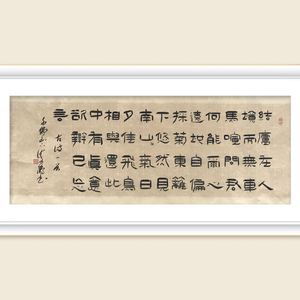 結廬在人
境而無車
馬喧問君
何能而心
遠地自偏
採菊東籬
下悠然見
南山々氣日
夕佳飛鳥
相與還此
中有眞意
欲辯已忘
言
古詩一首